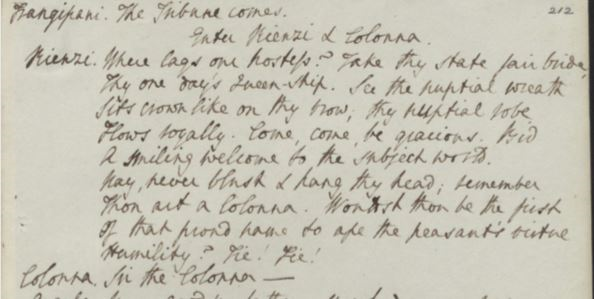 Frangipani. The Tribune comes. 212
Enter Rienzi & Colonna.
Rienzi. Where lags our hostess? Take thy state fair bride,
Thy one day's Queen-ship. See the nuptial wreath
Sits crownlike on thy brow; thy nuptial robe
Flows royally. Come, come, be gracious. Bid
A smiling welcome to the subject world.
Nay, never blush & hang thy head; remember
Thou art a Colonna. Wouldst thou be the first
Of that proud name to ape the peasant's virtue
Humility? Fie! Fie!
Colonna. Sir the Colonna —